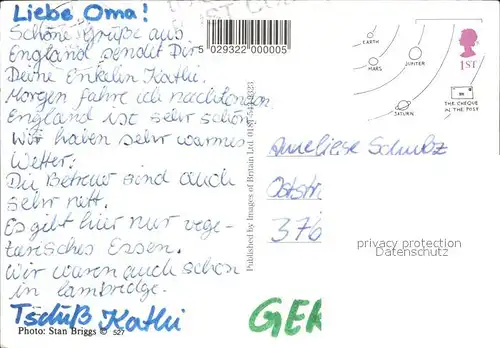 Liebe Oma!
Schöne Grüße aus
England sendet Dir
Deine Enkelin Kathi.
Morgen fahre ich nach London
England ist sehr schön
Wir haben sehr warmes
Wetter.
Die Betreuer sind auch
sehr nett.
Es gibt hier nur vege-
tarisches Essen.
Wir waren auch schon
in Cambridge.
Tschüß Kathi
Photo: Stan Briggs © 527
5 029322 000005
Published by Images of Britain Ltd.
EARTH
MARS
JUPITER
SATURN
1ST
THE CHEQUE
IN THE POST
Anneliese Schulz
Oststr
376
privacy protection
Datenschutz
GER